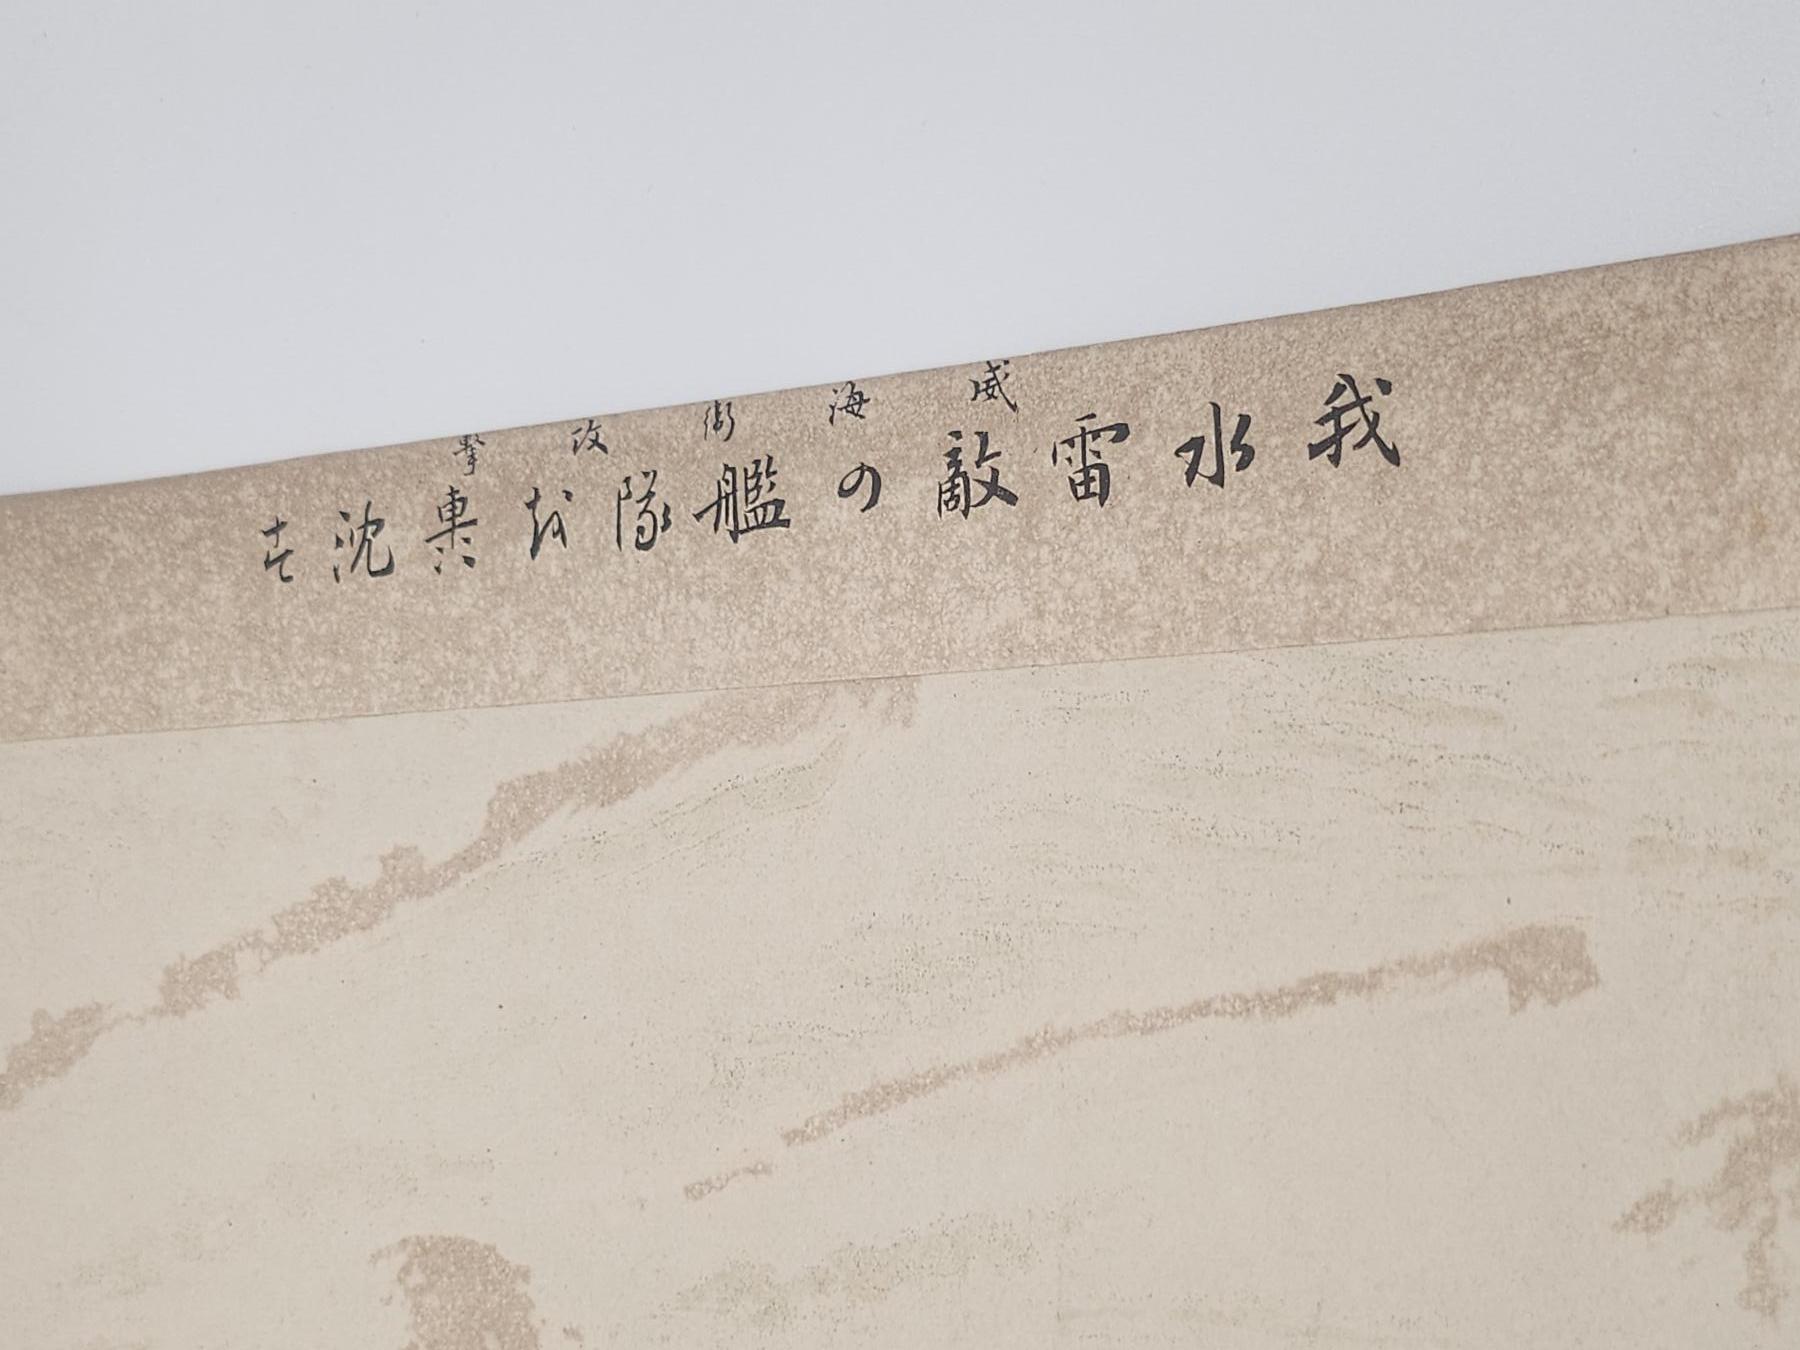 威海衛攻撃
我水雷敵の艦隊を轟沈す